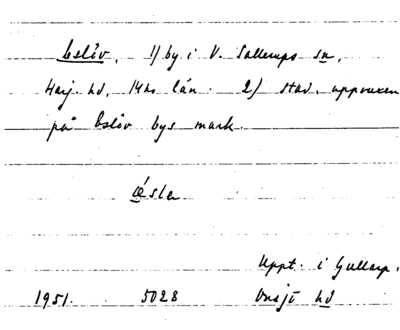 Eslöv, 1) by i V. Sallerups sn,
Harj. hd, Mhs län. 2) stad, uppvuxen
på Eslöv bys mark.
ésle
Uppt. i Gullarp,
1951. 5028 Onsjö hd